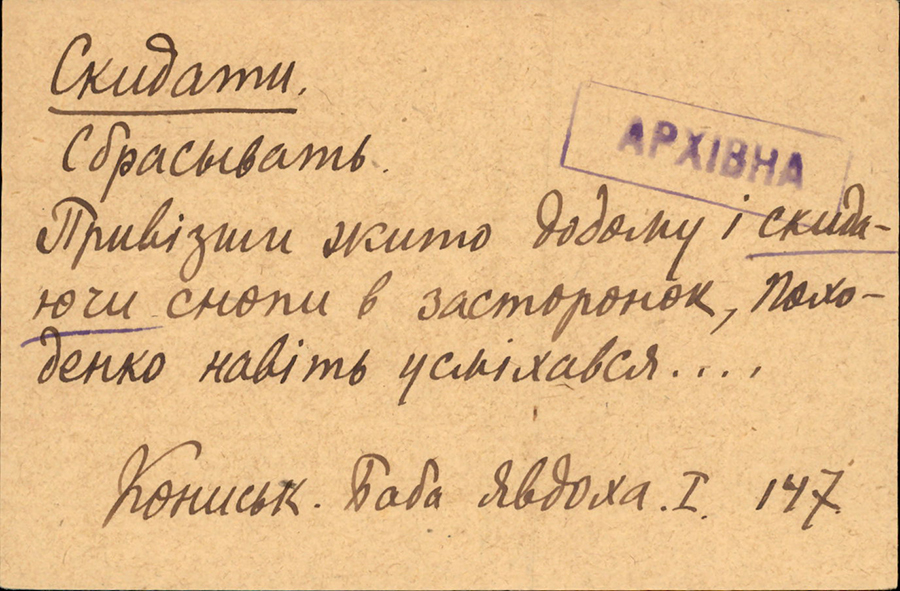 Скидати.
Сбрасывать.
АРХІВНА
Привізши жито додому і скида-
ючи снопи в засторонок, Похо-
денко навіть усміхався....
Кониськ. Баба Явдоха. I. 147.